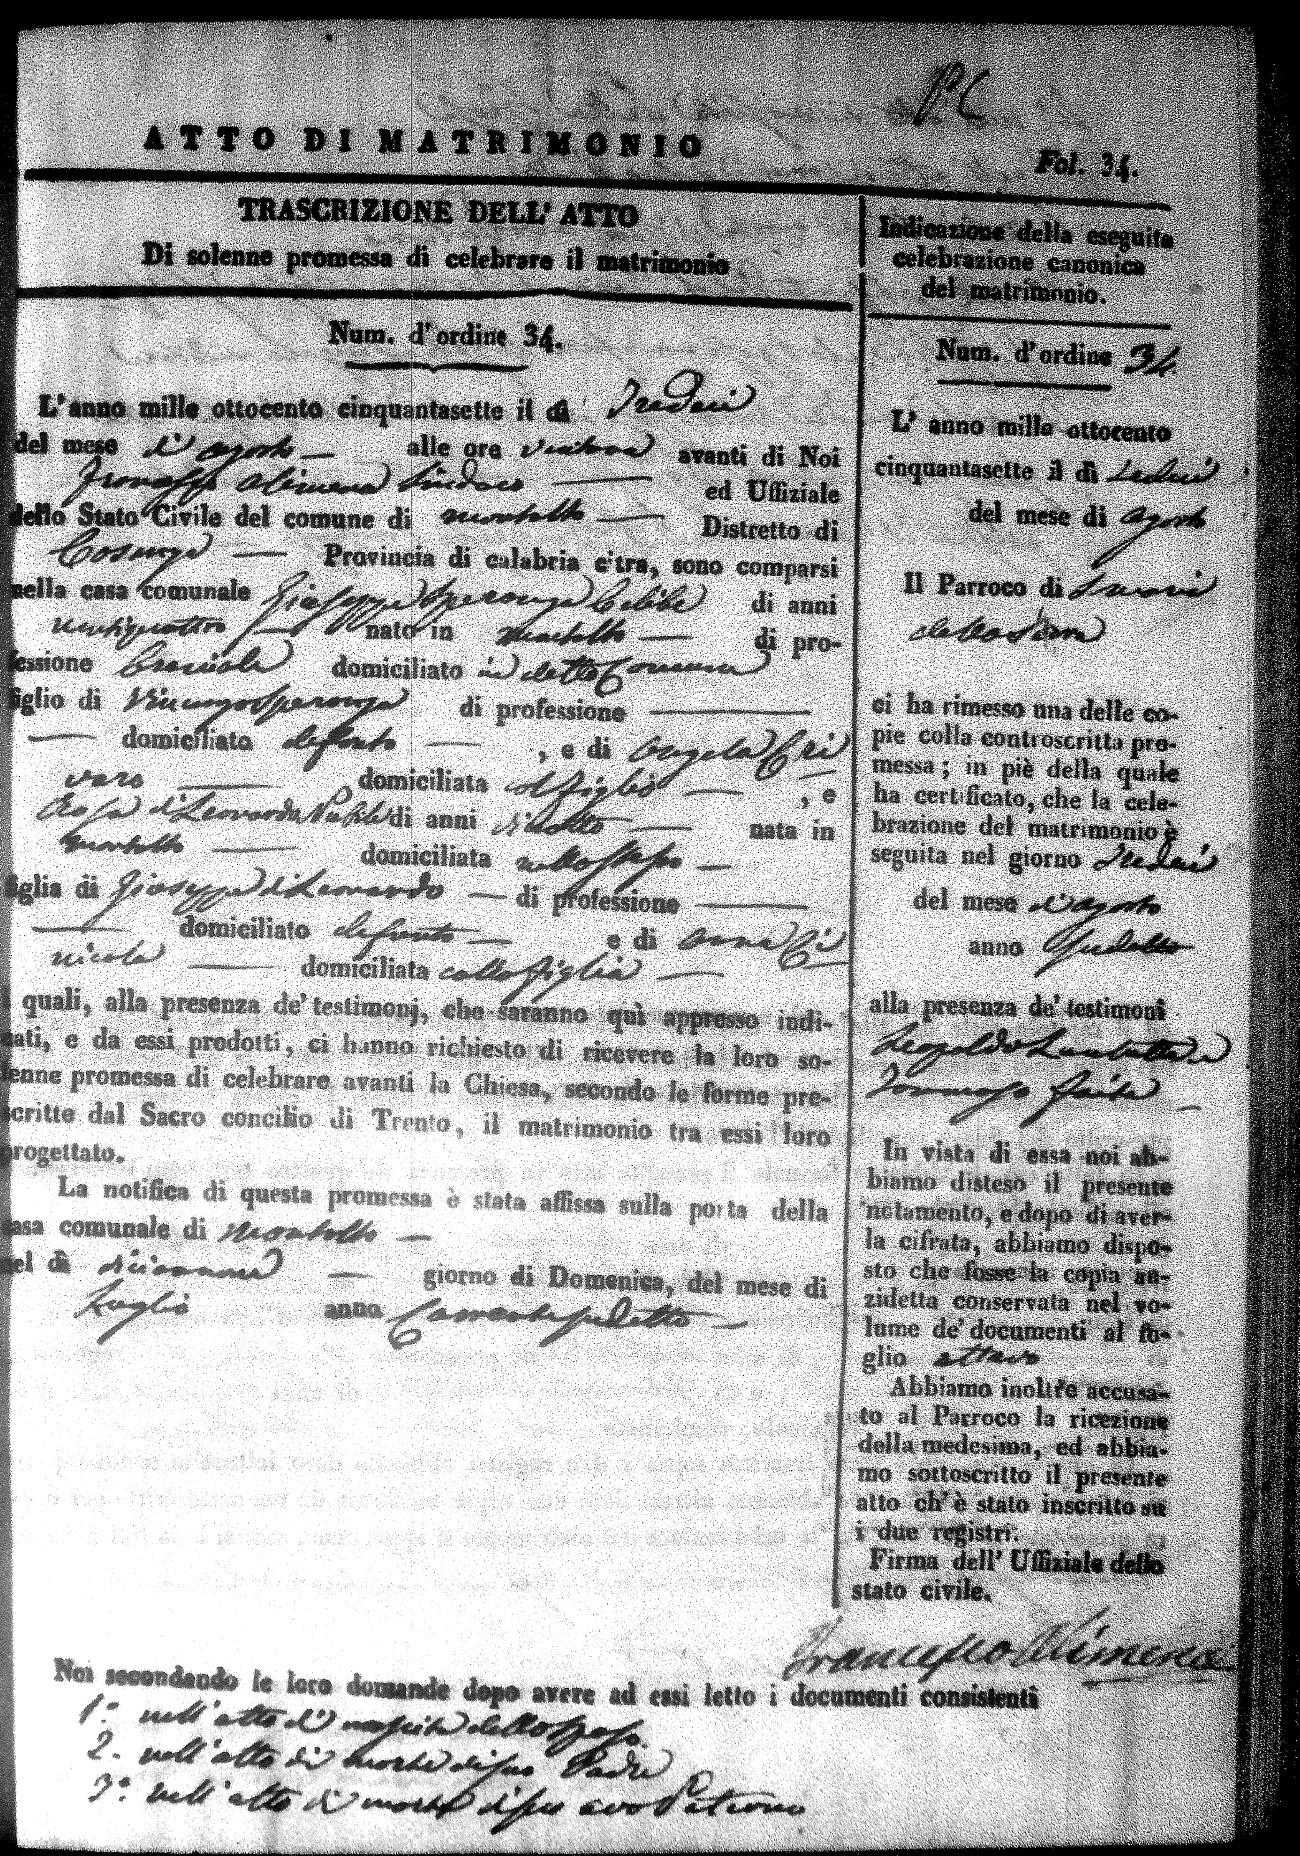 PC
ATTO DI MATRIMONIO
Fol. 34.
TRASCRIZIONE DELL' ATTO
Di solenne promessa di celebrare il matrimonio
Num. d'ordine 34.
L'anno mille ottocento cinquantasette il dì Tredici
del mese di agosto — alle ore avanti di Noi
Francesco Alimena Sindaco — ed Uffiziale
dello Stato Civile del comune di Montalto — Distretto di
Cosenza — Provincia di calabria citra, sono comparsi
nella casa comunale Giuseppe Speranza Celibe di anni
ventiquattro — nato in Montalto — di pro-
fessione domiciliato in detto Comune
figlio di Vincenzo Speranza di professione —
— domiciliato defonto — , e di Angela Cri
varo — domiciliata col figlio — , e
Rosa di Leonardo Nubile di anni diciotto — nata in
Montalto — domiciliata nello stesso —
figlia di Giuseppe di Leonardo — di professione —
— domiciliato defonto — e di Anna Ci
nicola — domiciliata colla figlia —
i quali, alla presenza de' testimonj, che saranno quì appresso indi-
cati, e da essi prodotti, ci hanno richiesto di ricevere la loro so-
lenne promessa di celebrare avanti la Chiesa, secondo le forme pre-
scritte dal Sacro concilio di Trento, il matrimonio tra essi loro
progettato.
La notifica di questa promessa è stata affissa sulla porta della
casa comunale di Montalto —
nel dì diciannove — giorno di Domenica, del mese di
Luglio anno Corrente sudetto —
Indicazione della eseguita
celebrazione canonica
del matrimonio.
Num. d'ordine 34
L' anno mille ottocento
cinquantasette il dì Tredici
del mese di agosto
Il Parroco di
ci ha rimesso una delle co-
pie colla controscritta pro-
messa; in piè della quale
ha certificato, che la cele-
brazione del matrimonio è
seguita nel giorno Tredici
del mese di agosto
anno Sudetto
alla presenza de' testimoni
Leopoldo
Tommaso
In vista di essa noi ab-
biamo disteso il presente
notamento, e dopo di aver-
la cifrata, abbiamo dispo-
sto che fosse la copia an-
zidetta conservata nel vo-
lume de' documenti al fo-
glio ottavo
Abbiamo inoltre accusa-
to al Parroco la ricezione
della medesima, ed abbia-
mo sottoscritto il presente
atto ch' è stato inscritto su
i due registri.
Firma dell' Uffiziale dello
stato civile.
Francesco Alimena
Noi secondando le loro domande dopo avere ad essi letto i documenti consistenti
1.° nell'atto di nascita dello sposo
2. nell'atto di morte di suo Padre
3.° nell'atto di morte di suo avo Paterno